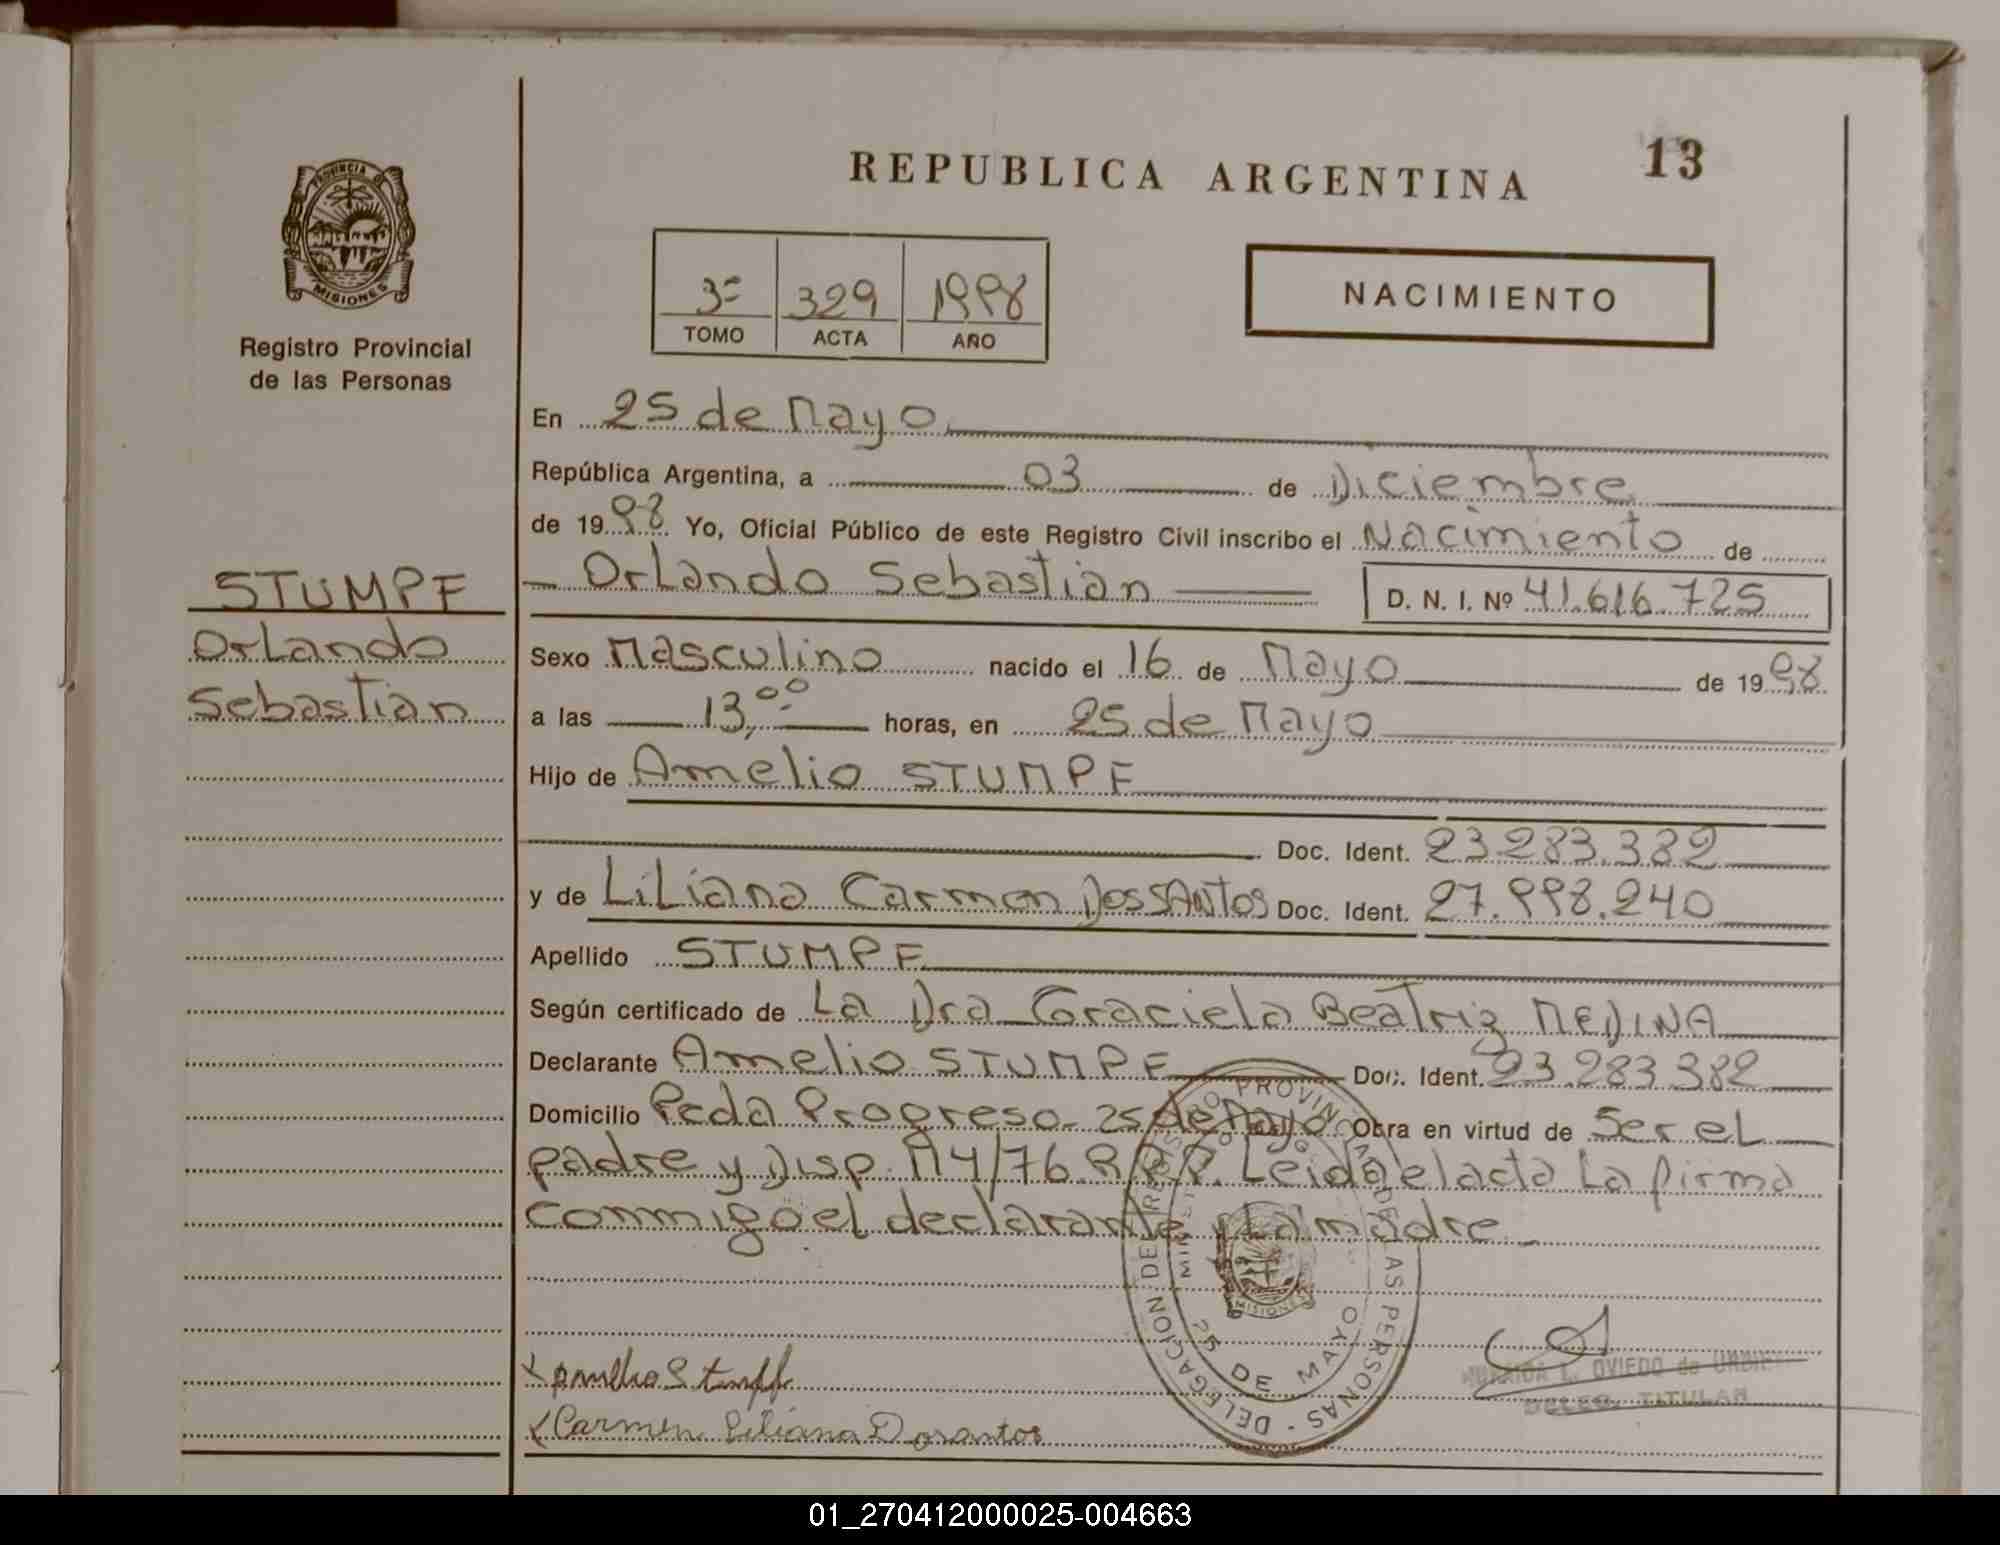 REPUBLICA ARGENTINA
13
PROVINCIA DE
MISIONES
Registro Provincial
de las Personas
3º 329 1998
TOMO ACTA AÑO
NACIMIENTO
En 25 de Mayo
República Argentina, a 03 de Diciembre
de 1998 Yo, Oficial Público de este Registro Civil inscribo el Nacimiento de
Orlando Sebastian D. N. I. Nº 41.616.725
STUMPF
Orlando
Sebastian
Sexo Masculino nacido el 16 de Mayo de 1998
a las 13,00 horas, en 25 de Mayo
Hijo de Amelio STUMPF
Doc. Ident. 23.283.382
y de Liliana Carmen Dos SANTOS Doc. Ident. 27.998.240
Apellido STUMPF
Según certificado de La Dra Graciela Beatriz MEDINA
Declarante Amelio STUMPF Doc. Ident. 23.283.382
Domicilio Pcda Progreso - 25 de Mayo Obra en virtud de Ser el
padre y Disp. M4/76. R.P.P. Leida el acta La firma
conmigo el declarante y La madre -
DELEGACION DE REGISTRO PROVINCIAL DE LAS PERSONAS
25 DE MAYO
MISIONES
x Amelio Stumpf
x Carmen Liliana Dosantos
L. OVIEDO de
DELEG. TITULAR
01_270412000025-004663